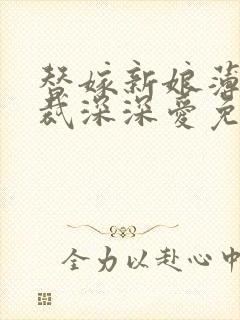 替嫁新娘薄
裁深深爱免
全力以赴心中